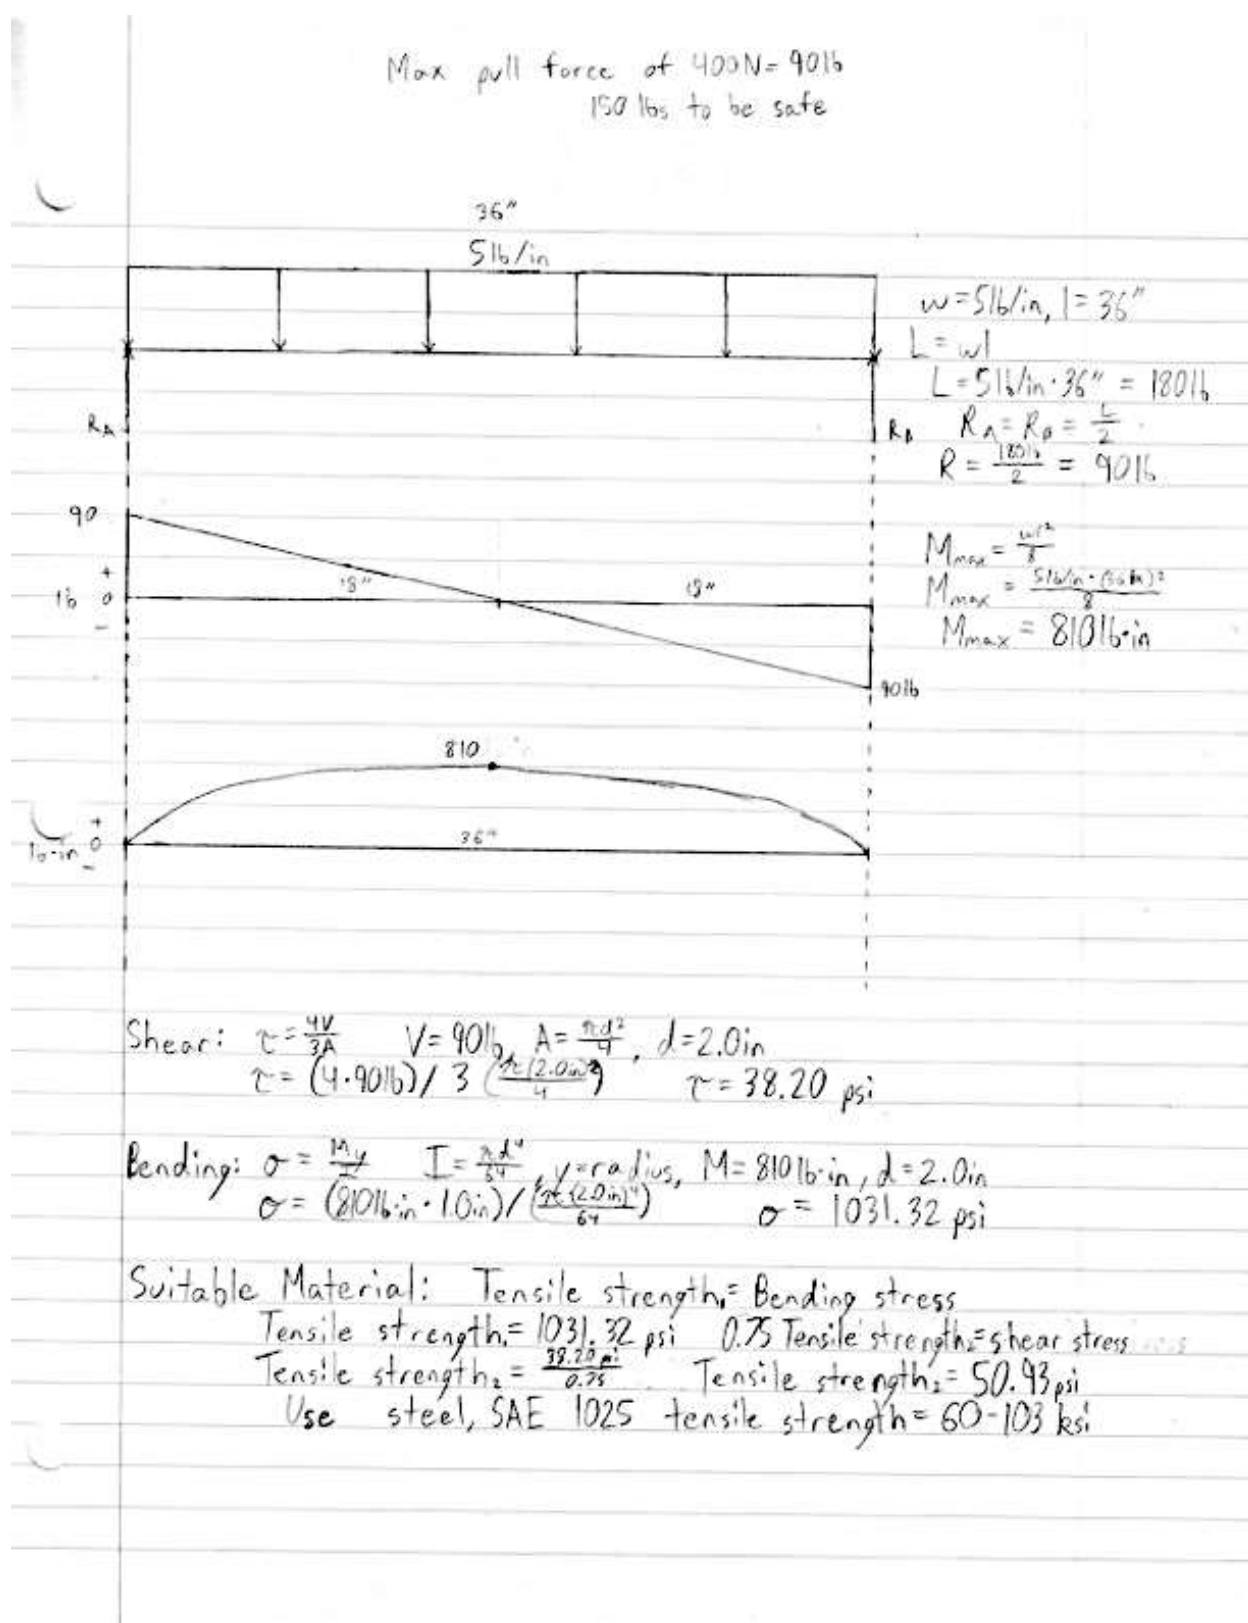 Max pull force of 400N = 90lb
150 lbs to be safe
36"
5lb/in
w=5lb/in, l=36"
L=wl
L=5lb/in·36" = 180lb
R_A R_B R_A = R_B = L/2
R = 180lb/2 = 90lb
90
M_max = wl²/8
+
18" 18"
lb 0
M_max = 5lb/in·(36in)²/8
-
M_max = 810lb·in
90lb
810
+
36"
lb-in 0
-
Shear: τ = 4V/3A V=90lb, A = πd²/4, d=2.0in
τ = (4·90lb)/3(π(2.0in)²/4) τ = 38.20 psi
Bending: σ = My/I I = πd⁴/64, y=radius, M=810lb·in, d=2.0in
σ = (810lb·in·1.0in)/(π(2.0in)⁴/64) σ = 1031.32 psi
Suitable Material: Tensile strength₁ = Bending stress
Tensile strength₁ = 1031.32 psi 0.75 Tensile strength₂ = shear stress
Tensile strength₂ = 38.20 psi/0.75 Tensile strength₂ = 50.93 psi
Use steel, SAE 1025 tensile strength = 60-103 ksi